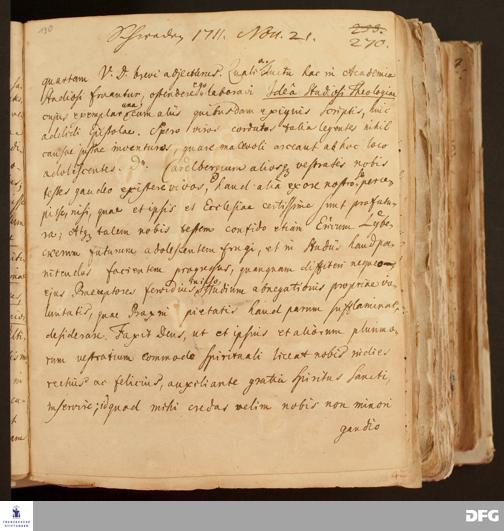 130
1711. Nov. 21.
298.
290.
quartam V. D. brevi adjecturus. Quali fructu hac in Academia
Studiosi fruantur, ostendere laboravi Idea Studiosi Theologiae
cujus exemplar una cum aliis quibusdam exiguis scriptis, huic
addidi Epistolae. Spero viros cordatos talia legentes nihil
causae justae inventuros, quare malevoli arceant ab hoc loco
adolescentes. Dn. Carelbergium aliosq vestrates nobis
testes gaudeo existere vivos, haud alia ex ore nostro perce-
pisse, nisi, quae et ipsis et Ecclesiae certissime sint profutu-
ra; Atq talem nobis testem confido etiam Ericum
futurum adolescentem frugi, et in studiis haud poe-
nitendos facientem progressus, quanquam diffiteri nequeo
ejus Praeceptores fervidius studium abnegationis propriae vo-
luntatis, quae Praxin pietatis haud parum sufflaminat,
desiderare. Faxit Deus, ut et ipsius et aliorum plurimo-
rum vestratium commodo spirituali liceat nobis indies
rectius ac felicius, auxiliante gratia Spiritus Sancti,
inservire; id quod mihi credas velim nobis non minori
gaudio
FRANCKESCHE
STIFTUNGEN
DFG